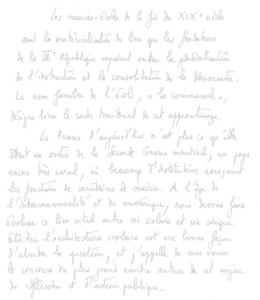 Les mairies-écoles de la fin du XIXe siècle
sont la matérialisation du lien que les fondateurs
de la IIIe République voyaient entre la généralisation
de l'instruction et la consolidation de la démocratie.
Le nom familier de l'école, « la communale »,
désigne bien le cadre territorial de cet apprentissage.
La France d'aujourd'hui n'est plus ce qu'elle
était au sortir de la seconde Guerre mondiale, un pays
encore très rural, où beaucoup d'instituteurs exerçaient
les fonctions de secrétaires de mairie. A l'âge de
l'intercommunalité et du numérique, nous devons faire
évoluer ce lien vital entre vie scolaire et vie civique.
l'architecture scolaire est une bonne façon
d'aborder la question, et j'appelle de mes vœux
le concours du plus grand nombre autour de cet enjeu
de réflexion et d'action publique.